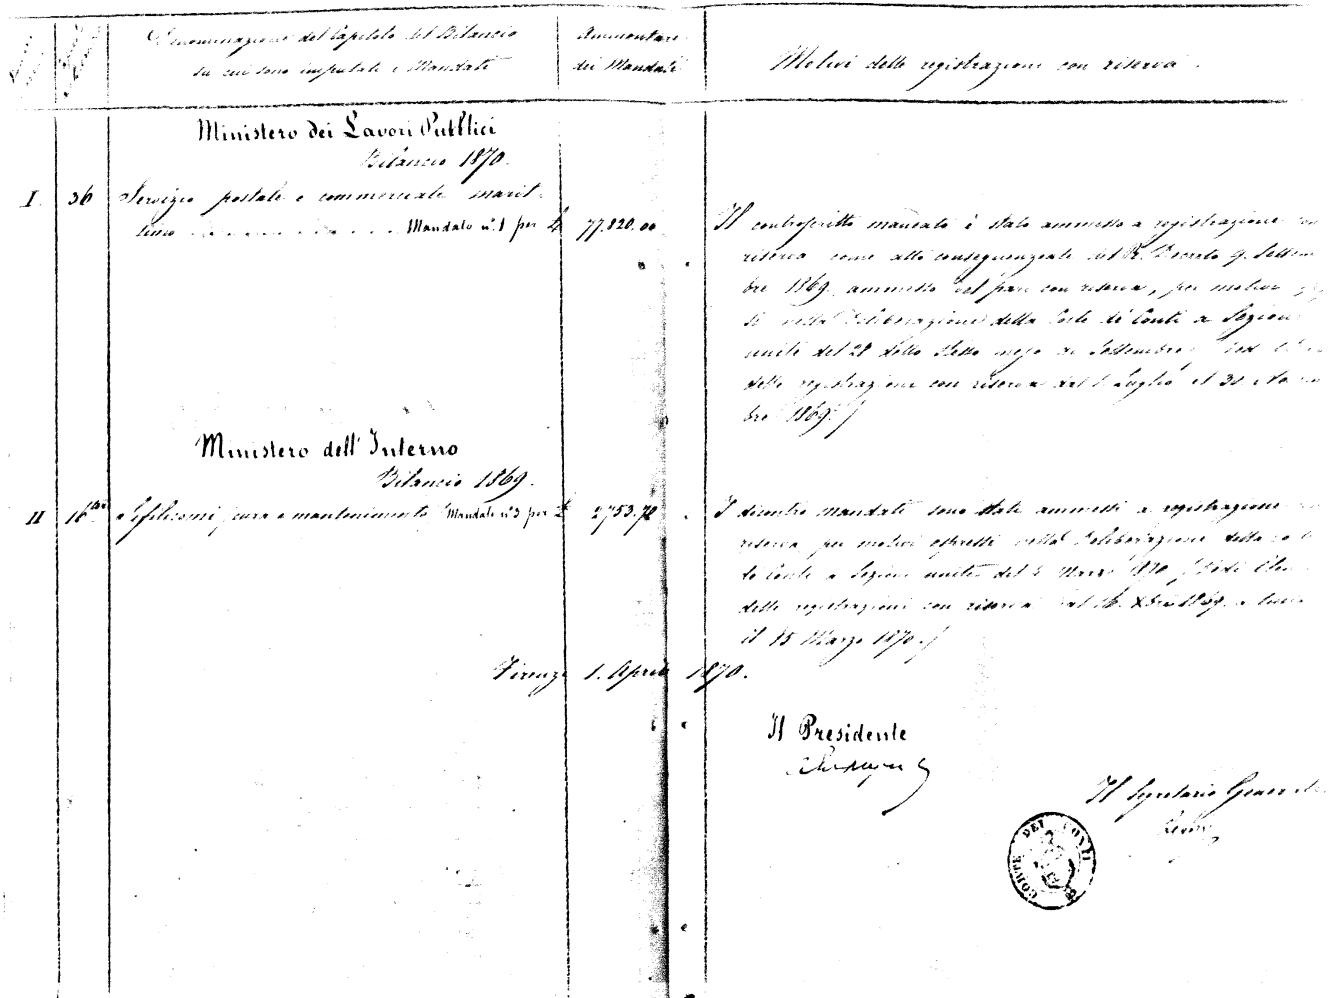 Denominazione del Capitolo del Bilancio
su cui sono imputati i Mandati
Ammontare
dei Mandati
Motivi della registrazione con riserva.
Ministero dei Lavori Pubblici
Bilancio 1870.
I. 36 Servizio postale e commerciale marit-
timo . . . . . . . . . . Mandato n.° 1 per £ 77.820.00
Il controscritto mandato è stato ammesso a registrazione con
riserva come atto conseguenziale del R. Decreto 9. Settem
bre 1869. ammesso del pari con riserva, per motivi
si nella deliberazione della Corte di Conti a Sezioni
unite del 28 dello stesso mese di Settembre
delle registrazioni con riserva dal 1. Luglio al 30
bre 1869./
Ministero dell'Interno
Bilancio 1869.
II 16 Sifilicomi, cura e mantenimento Mandato n.° 3 per £ 2753.70
I dicontro mandati sono stati ammessi a registrazione
riserva per motivi espressi nella deliberazione della
di Conti a Sezioni unite del Marzo 1870
delle registrazioni con riserva dal 16. Xbre 1869. a tutto
il 15 Marzo 1870./
Firenze 1. Aprile 1870.
Il Presidente
Il Segretario Generale
CORTE DEI CONTI